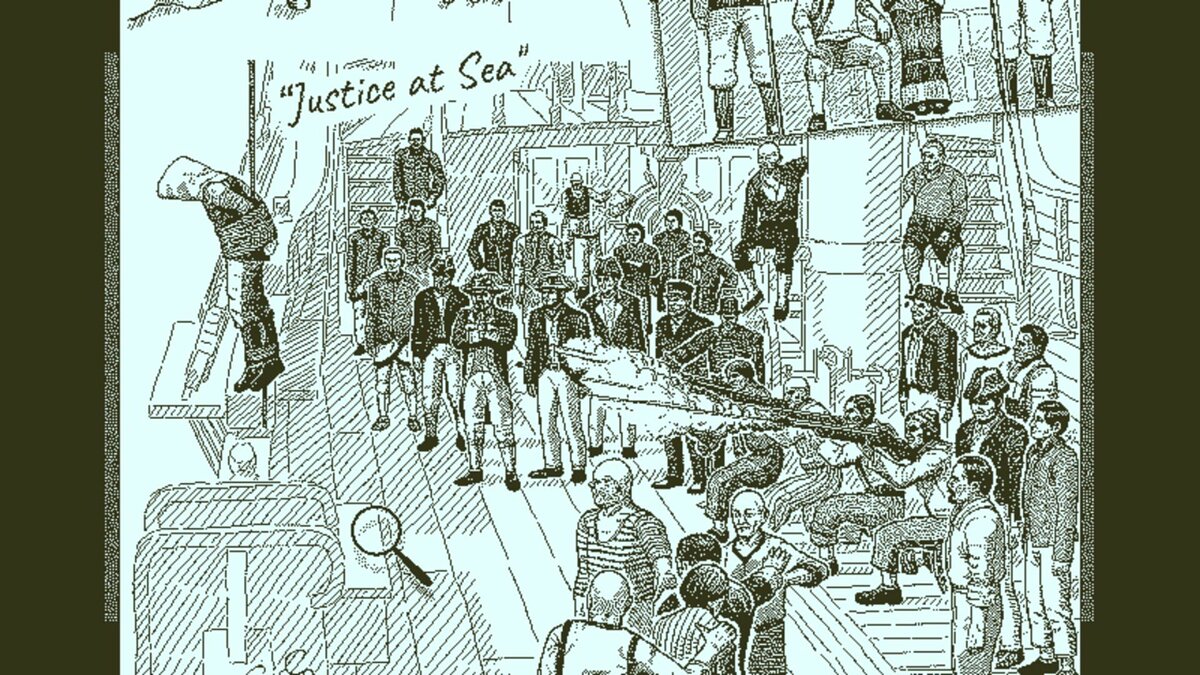 “Justice at Sea”